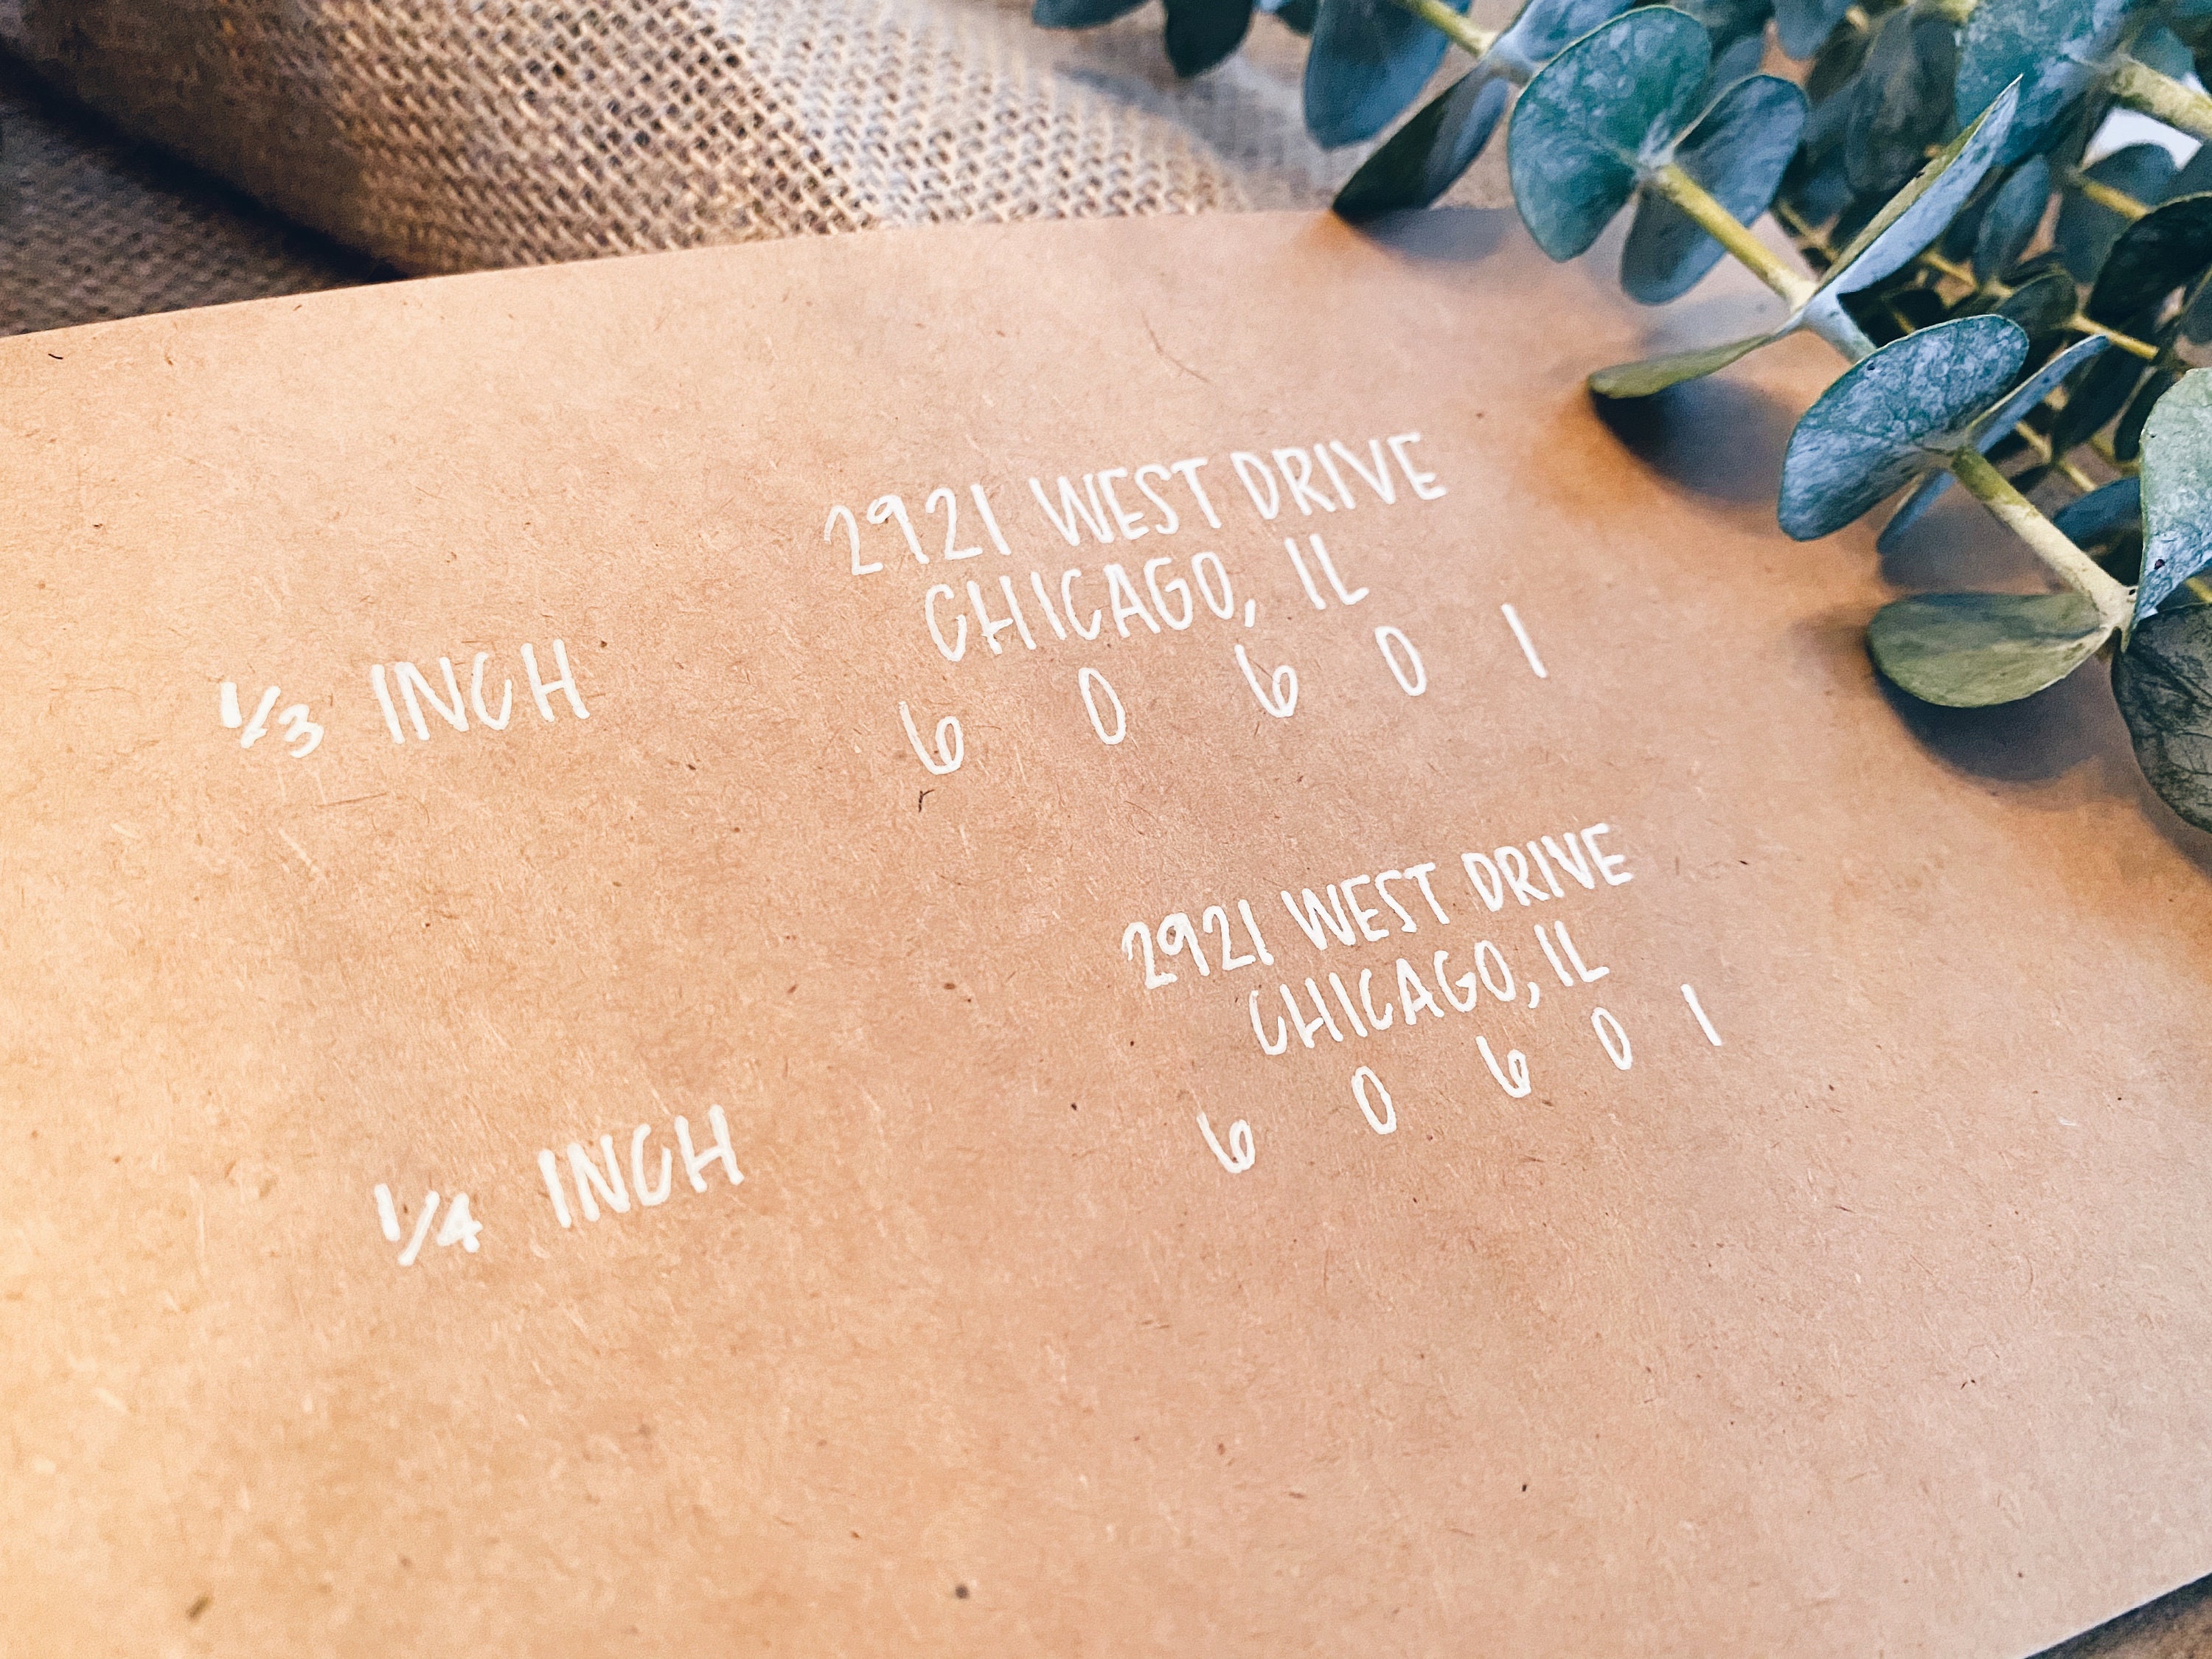 2921 WEST DRIVE
CHICAGO, IL
1/3 INCH
6 0 6 0 1
2921 WEST DRIVE
CHICAGO, IL
6 0 6 0 1
1/4 INCH